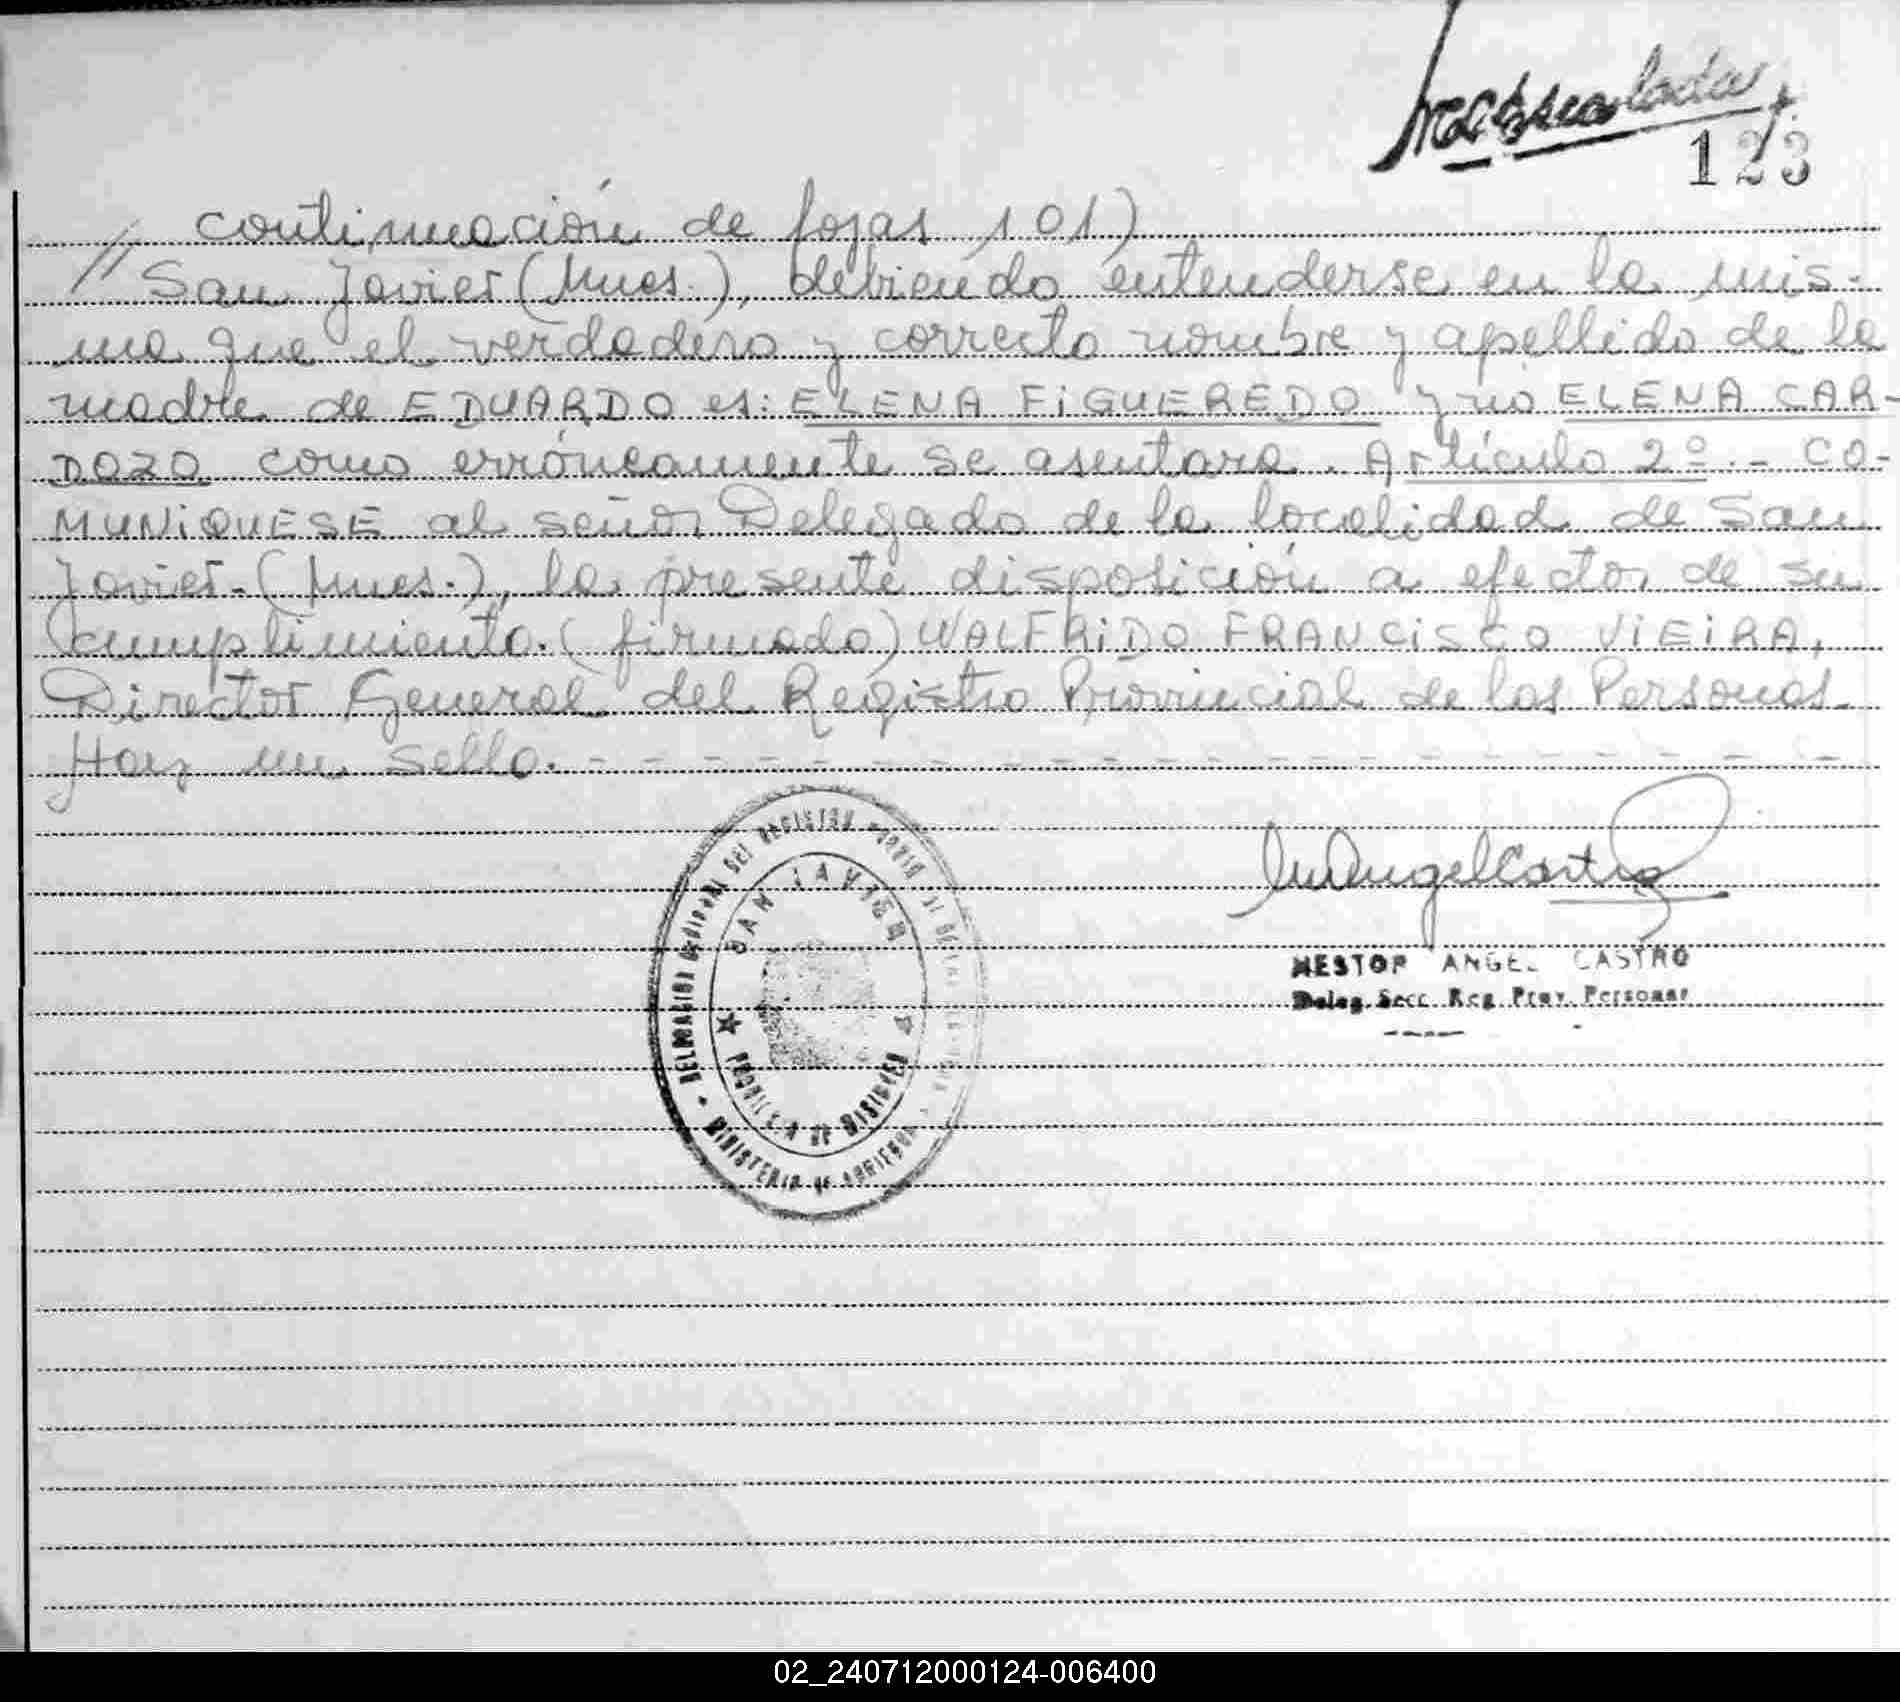 123
continuación de fojas 101)
// San Javier (Mnes.), debiendo entenderse en la mis-
ma que el verdadero y correcto nombre y apellido de la
madre de EDUARDO es: ELENA FIGUEREDO y no ELENA CAR-
DOZO como erróneamente se asentara. Artículo 2º.- CO-
MUNIQUESE al señor Delegado de la localidad de San
Javier.- (Mnes.), la presente disposición a efectos de su
cumplimiento. (firmado) WALFRIDO FRANCISCO VIEIRA,
Director General del Registro Provincial de las Personas.
Hay un sello. - - - - - - - - - - - - - - - - - - - - - -
SAN JAVIER
PROVINCIA DE MISIONES
MINISTERIO DE
NESTOR ANGEL CASTRO
Deleg. Secc. Reg. Prov. Personas
02_240712000124-006400